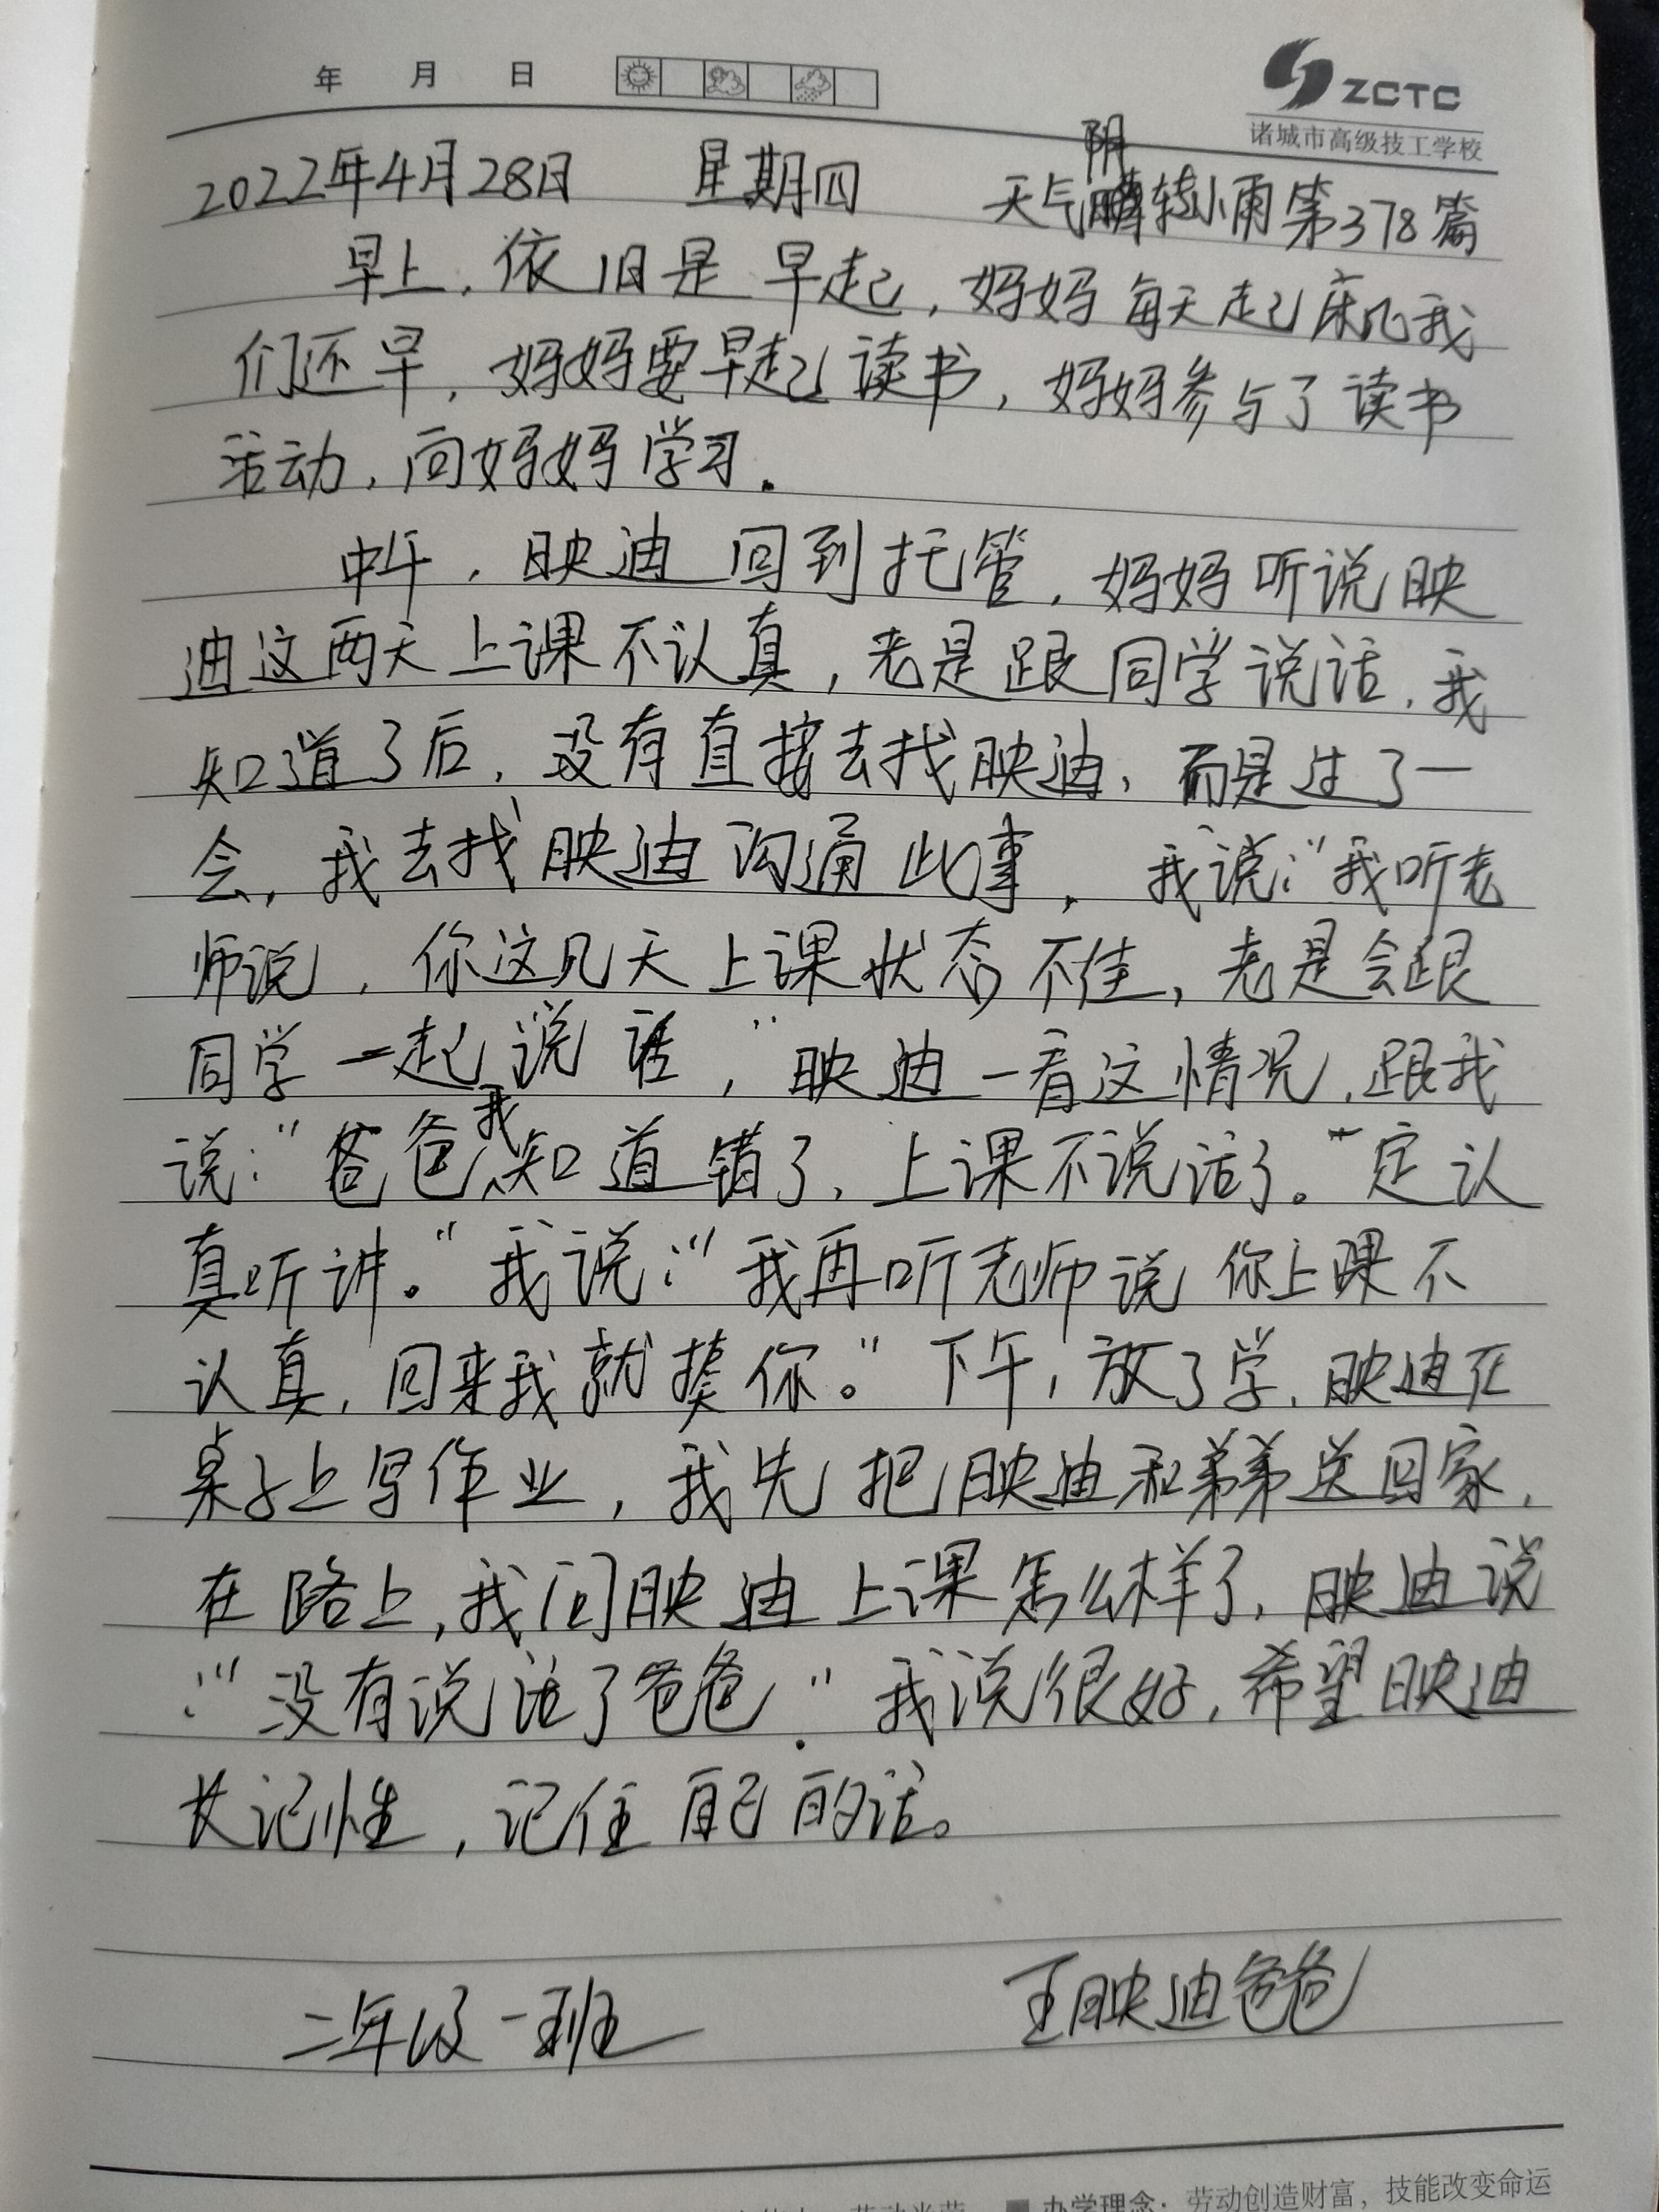 年 月 日
ZCTC
诸城市高级技工学校
2022年4月28日 星期四 天气阴转小雨第378篇
早上,依旧是早起,妈妈每天起床比我
们还早,妈妈要早起读书,妈妈参与了读书
活动,向妈妈学习.
中午,映迪回到托管,妈妈听说映
迪这两天上课不认真,老是跟同学说话,我
知道了后,没有直接去找映迪,而是过了一
会,我去找映迪沟通此事,我说:"我听老
师说,你这几天上课状态不佳,老是会跟
同学一起说话,"映迪一看这情况,跟我
说:"爸爸我知道错了,上课不说话了。一定认
真听讲。"我说:"我再听老师说你上课不
认真,回来我就揍你。"下午,放了学,映迪在
桌子上写作业,我先把映迪和弟弟送回家,
在路上,我问映迪上课怎么样了,映迪说
:"没有说话了爸爸."我说很好,希望映迪
长记性,记住自己的话。
二年级一班 王映迪爸爸
办学理念:劳动创造财富,技能改变命运